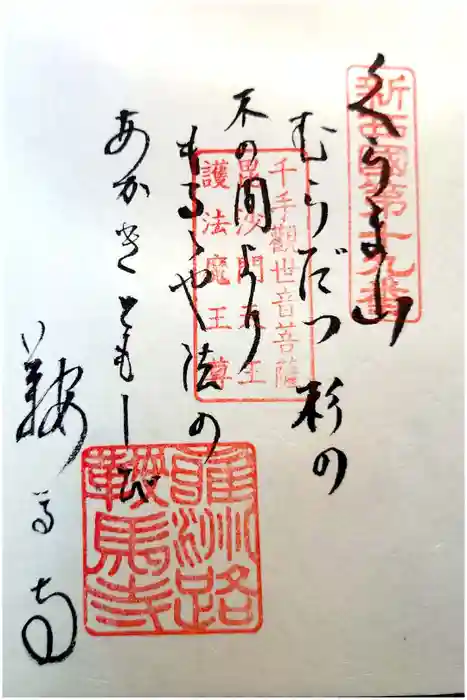 くらま山
むらだつ杉の
木の間より
もるゝや法の
あかきともしび
鞍馬寺
新西國第十九番
千手觀世音菩薩
毘沙門天王
護法魔王尊
雍州路
鞍馬寺